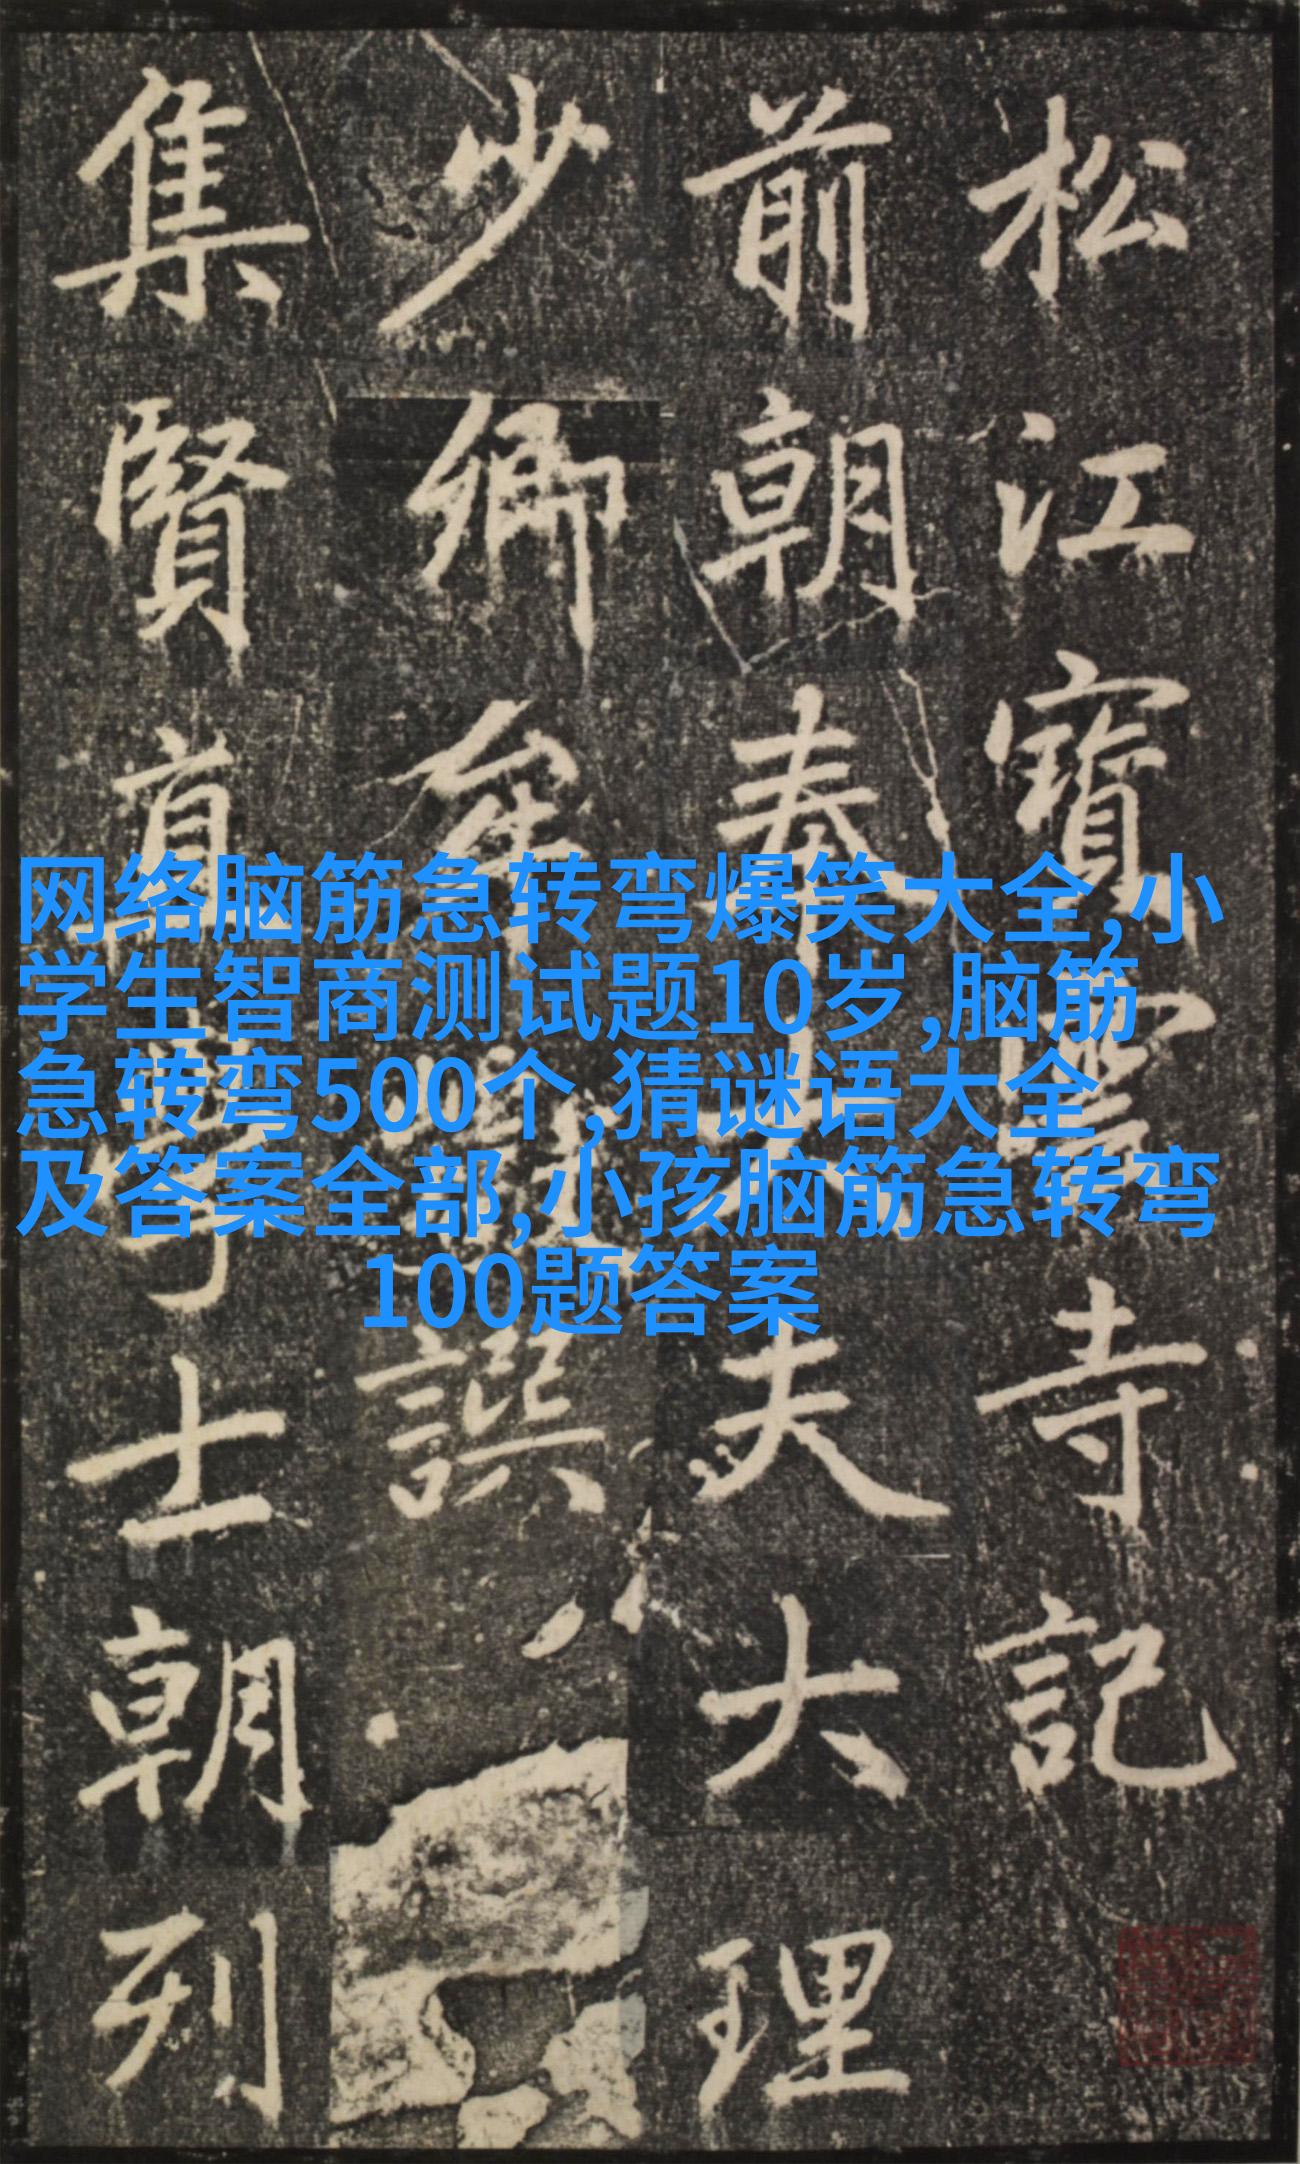 松江寶雲寺記
前朝奉大夫大理
少卿牟巘譔
集賢直學士朝列
网络脑筋急转弯爆笑大全,小
学生智商测试题10岁,脑筋
急转弯500个,猜谜语大全
及答案全部,小孩脑筋急转弯
100题答案